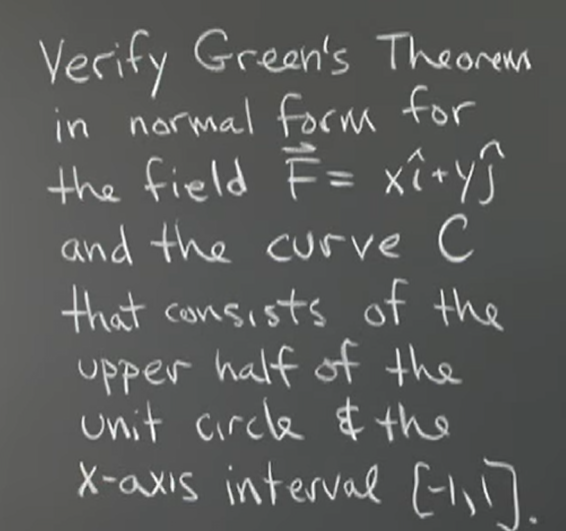 Verify Green's Theorem
in normal form for
the field F⃗ = xî+yĵ
and the curve C
that consists of the
upper half of the
unit circle & the
x-axis interval [-1,1].